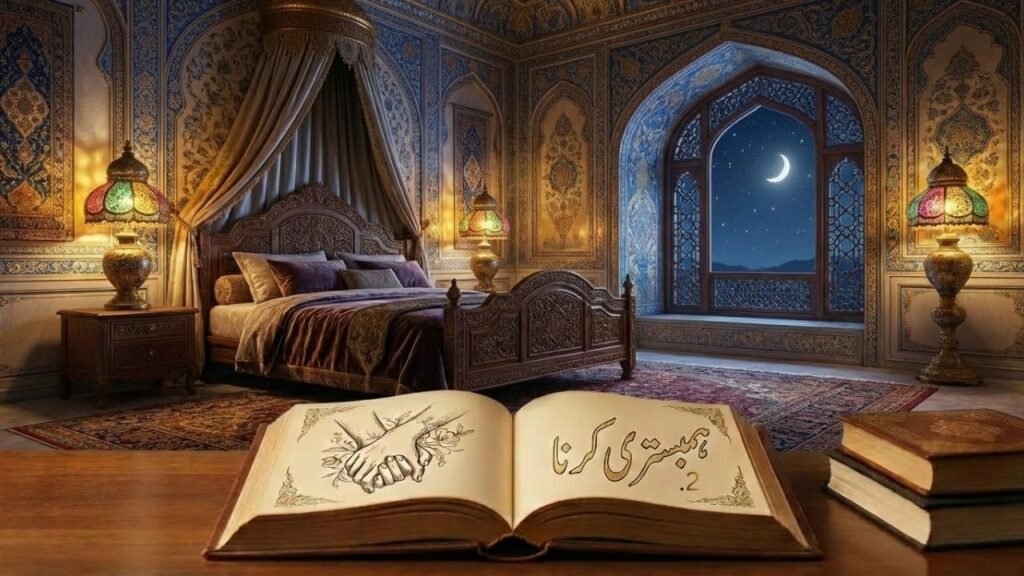 ہمبستری کرنا
.2